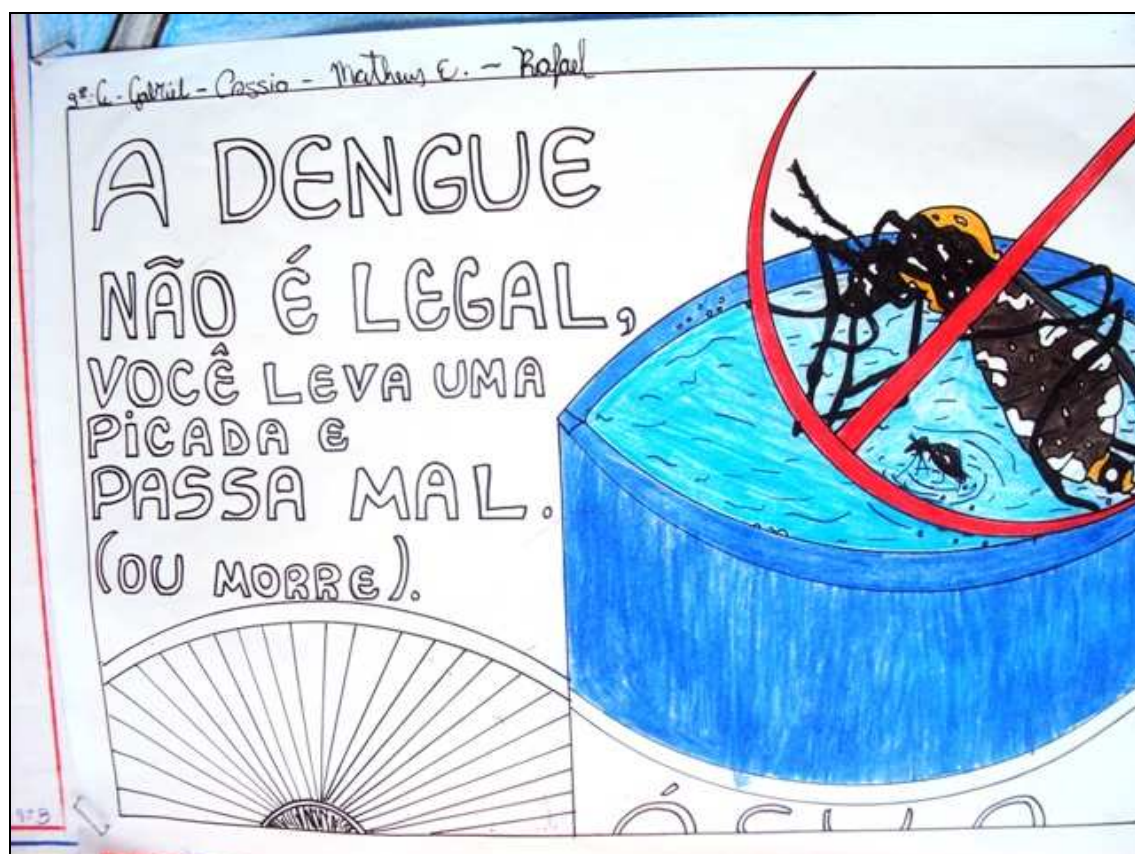 Gabriel - Cassio - Matheus E. - Rafael
A DENGUE
NÃO É LEGAL,
VOCÊ LEVA UMA
PICADA E
PASSA MAL.
(OU MORRE).